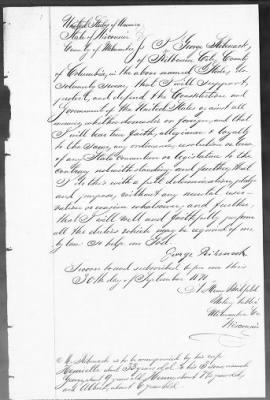 United States of America
State of Wisconsin
County of Milwaukee
I, George
of Kilbourn City, County
of Columbia, in the above named State, do
solemnly swear, that I will support,
protect, and defend the Constitution and
Government of the United States against all
enemies, whether domestic or foreign, and that
I will bear true faith, allegiance & loyalty
to the same, any ordinance, resolution or law
of any State Convention or legislature to the
contrary notwithstanding, and further, that
I do this with a full determination, pledge
and purpose, without any mental reser-
vation or evasion whatsoever, and further,
that I will well and faithfully perform
all the duties which may be required of me
by law. So help me God.
George
Sworn to and subscribed before me this
30th day of September 1871
Notary Public
Milwaukee Co
Wisconsin
Mr. is to be accompanied by his wife
Henriette about 33 years old & his 3 sons named
George about 9 years old, Henry about 7½ years old,
and Albert, about 6 years old.